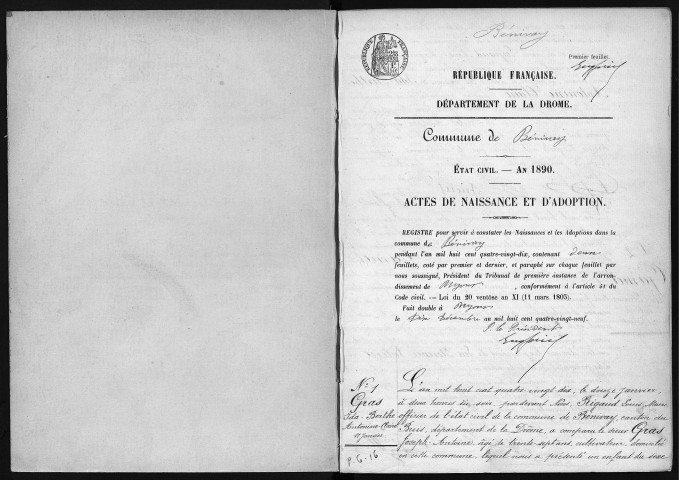 Bénivay
Premier feuillet.
RÉPUBLIQUE FRANÇAISE
RÉPUBLIQUE FRANÇAISE.
DÉPARTEMENT DE LA DROME.
Commune de Bénivay
ÉTAT CIVIL. — AN 1890.
ACTES DE NAISSANCE ET D'ADOPTION.
REGISTRE pour servir à constater les Naissances et les Adoptions dans la
commune de Bénivay
pendant l'an mil huit cent quatre-vingt-dix, contenant deux
feuillets, coté par premier et dernier, et paraphé sur chaque feuillet par
nous soussigné, Président du Tribunal de première instance de l'arron-
dissement de Nyons, conformément à l'article 41 du
Code civil. — Loi du 20 ventôse an XI (11 mars 1803).
Fait double à Nyons
le dix Décembre an mil huit cent quatre-vingt-neuf.
P. le Président
N° 1
Gras
Ida-Berthe
Antonine-
12 janvier
P. G. 16
L'an mil huit cent quatre vingt dix, le douze janvier
à deux heures du soir, pardevant Nous, Rigaud Louis, Maire
officier de l'état civil de la commune de Bénivay, canton du
Buis, département de la Drôme, a comparu le sieur Gras
Joseph-Antoine âgé de trente sept ans, cultivateur, domicilié
en cette commune, lequel nous a présenté un enfant du sexe